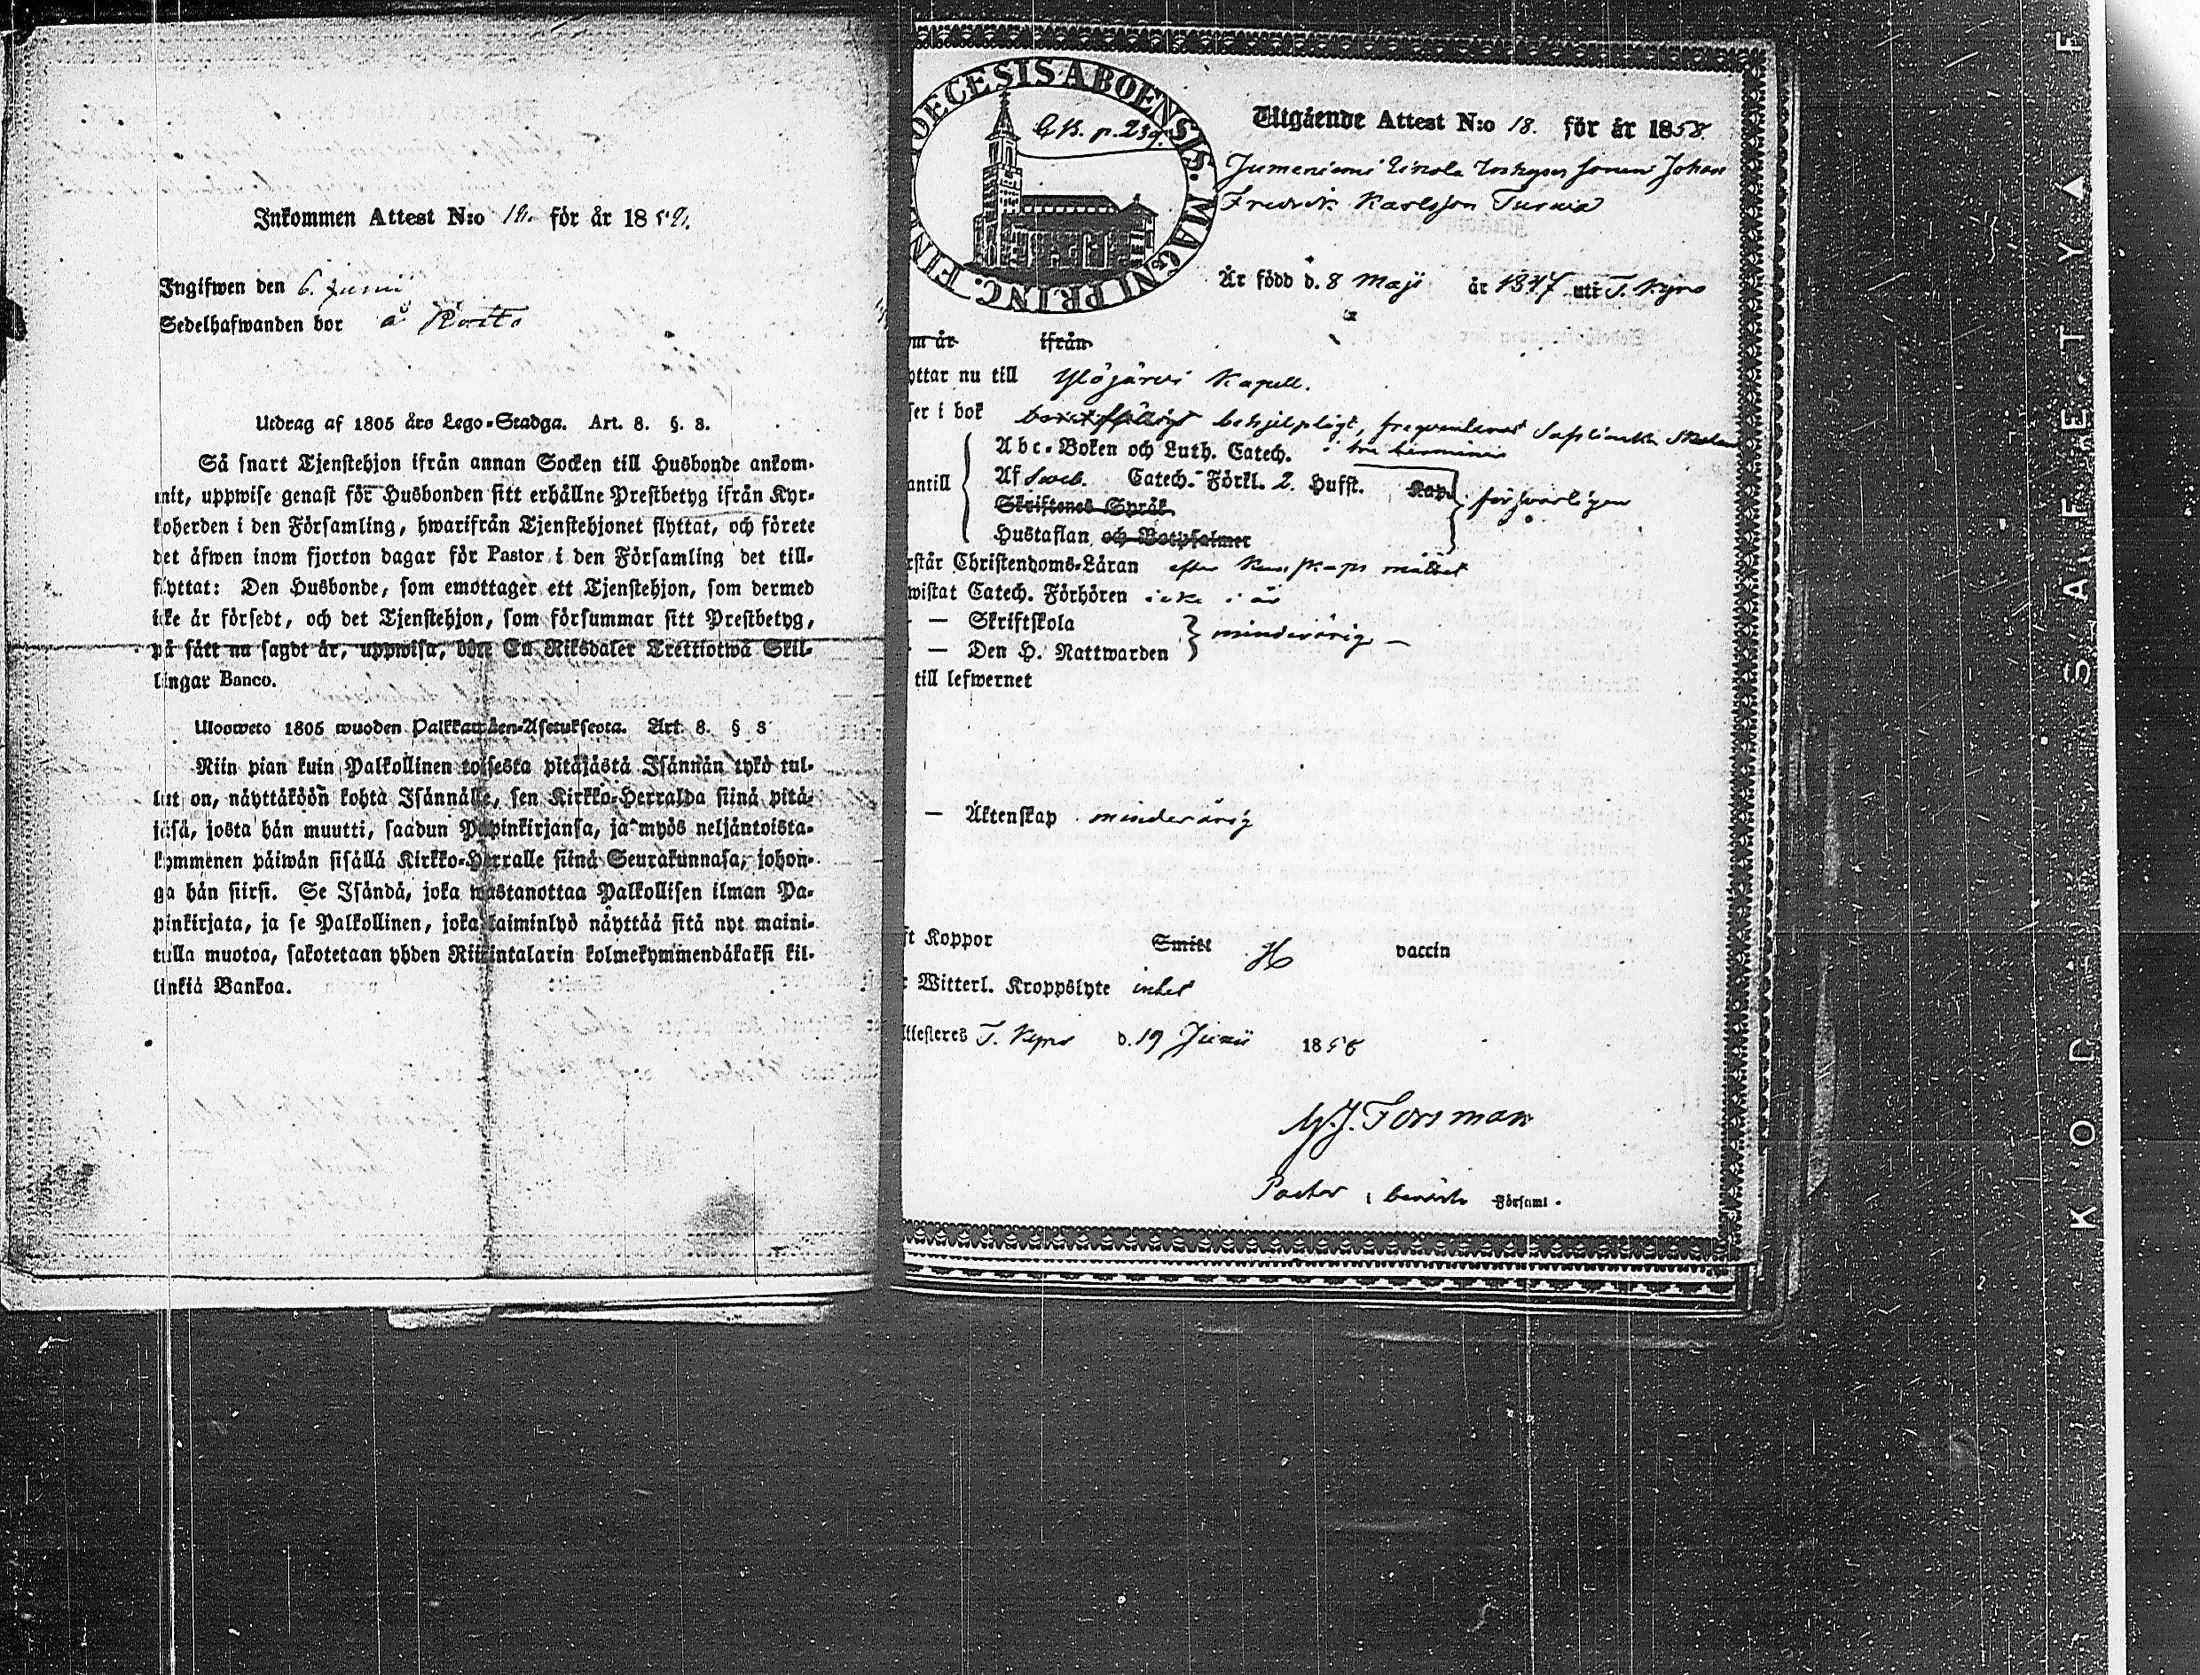 Inkommen Attest N:o för år 18
Ingifwen den 6. Junii
Sedelhafwanden bor å
Utdrag af 1805 års Lego-Stadga. Art. 8. §. 3.
Så snart Tjenstehjon ifrån annan Socken till Husbonde ankom-
mit, uppwise genast för Husbonden sitt erhållne Prestbetyg ifrån Kyr-
koherden i den Församling, hwarifrån Tjenstehjonet flyttat, och förete
det äfwen inom fjorton dagar för Pastor i den Församling det till-
flyttat: Den Husbonde, som emottager ett Tjenstehjon, som dermed
icke är försedt, och det Tjenstehjon, som försummar sitt Prestbetyg,
på sätt nu sagdt är, uppwisa, böte En Riksdaler Trettiotwå Skil-
lingar Banco.
Ulosweto 1805 wuoden Palkkawäen-Asetuksesta. Art. 8. § 3
Niin pian kuin Palkollinen toisesta pitäjästä Isännän tykö tul-
lut on, näyttäköön kohta Isännälle, sen Kirkko-Herralda siinä pitä-
jäsä, josta hän muutti, saadun Papinkirjansa, ja myös neljäntoista-
kymmenen päiwän sisällä Kirkko-Herralle siinä Seurakunnasa, johon-
ga hän siirsi. Se Isändä, joka wastanottaa Palkollisen ilman Pa-
pinkirjata, ja se Palkollinen, joka laiminlyö näyttää sitä nyt maini-
tulla muotoa, sakotetaan yhden Riikintalarin kolmekymmendäkaksi kil-
linkiä Bankoa.
DIOECESIS ABOENSIS. MAGNI PRINC. FIN
p. 239.
Utgående Attest N:o 18. för år 1858.
Johan
Fredrik Karlsson
Är född d. 8 Maji år 1847 uti T. Kyro
om år ifrån
yttar nu till Ylöjärvi Kapell.
ser i bok behjelpligt,
Abc-Boken och Luth. Catech. i tre terminer
antill Af Sveb. Catech. Förkl. 2. Hufst. Kap. försvarligen
Skriftenes Språk
Hustaflan och Botpsalmer
rstår Christendoms-Läran efter
wistat Catech. Förhören icke i år
— Skriftskola
— Den H. Nattwarden minderårig —
till lefwernet
— Äktenskap minderårig
ft Koppor Smitt vaccin
Witterl. Kroppslyte intet
ttesteres T. Kyro d. 19 Junii 1858
Forsman
Pastor i Församl.
KODAK SAFETY F